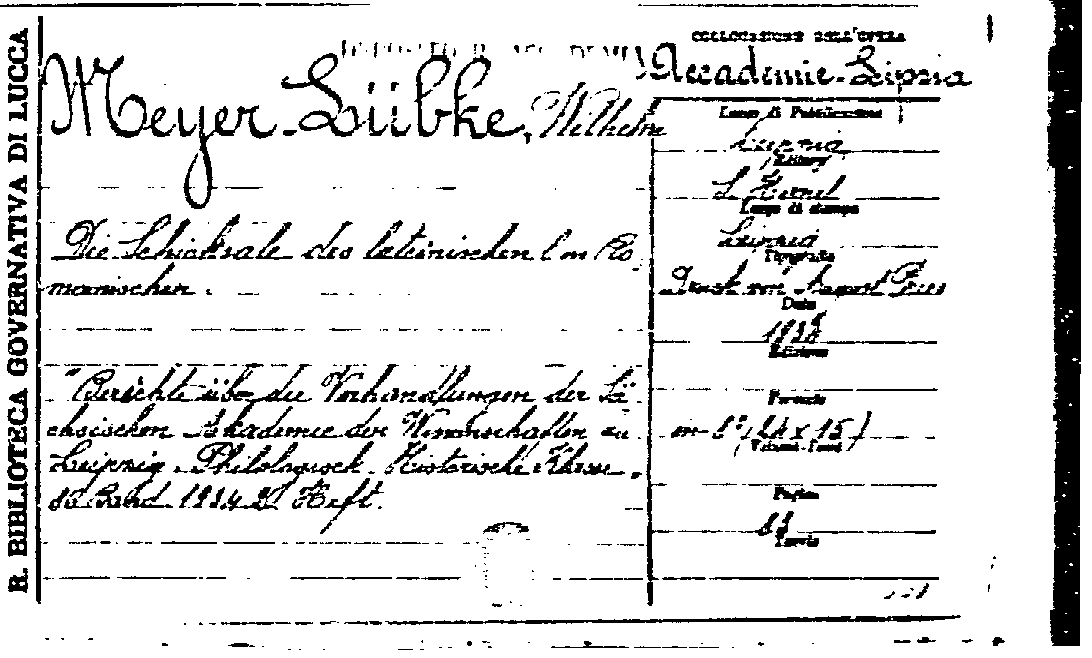 R. BIBLIOTECA GOVERNATIVA DI LUCCA
Meyer-Lübke, Wilhelm
Die Schicksale des lateinischen l im Ro-
manischen.
"Berichte über die Verhandlungen der Sä-
chsischen Akademie der Wissenschaften zu
Leipzig. Philologisch-Historische Klasse.
86 Band 1934 2. Heft.
COLLOCAZIONE DELL'OPERA
Accademie-Lipsia
Luogo di Pubblicazione
Leipzig
Editore
S. Hirzel
Luogo di stampa
Leipzig
Tipografia
Druck von August Pries
Data
Edizione
Formato
in-8° (24 x 15)
Pagine
Tavole